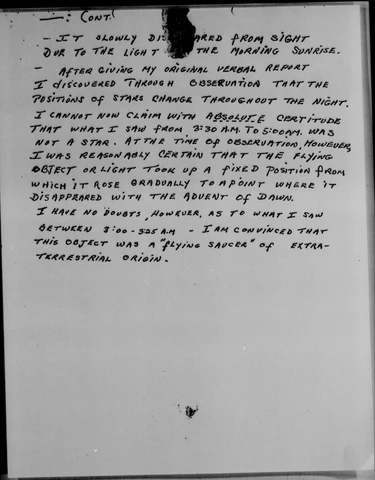 —: CONT.
- IT SLOWLY DISAPPEARED FROM SIGHT
DUE TO THE LIGHT THE MORNING SUNRISE.
- AFTER GIVING MY ORIGINAL VERBAL REPORT
I DISCOVERED THROUGH OBSERVATION THAT THE
POSITIONS OF STARS CHANGE THROUGHOUT THE NIGHT.
I CANNOT NOW CLAIM WITH ABSOLUTE CERTITUDE
THAT WHAT I SAW FROM 3:30 A.M. TO 5:00 A.M. WAS
NOT A STAR. AT THE TIME OF OBSERVATION, HOWEVER,
I WAS REASONABLY CERTAIN THAT THE FLYING
OBJECT OR LIGHT TOOK UP A FIXED POSITION FROM
WHICH IT ROSE GRADUALLY TO A POINT WHERE IT
DISAPPEARED WITH THE ADVENT OF DAWN.
I HAVE NO DOUBTS, HOWEVER, AS TO WHAT I SAW
BETWEEN 3:00 - 3:25 A.M - I AM CONVINCED THAT
THIS OBJECT WAS A "FLYING SAUCER" OF EXTRA-
TERRESTRIAL ORIGIN.